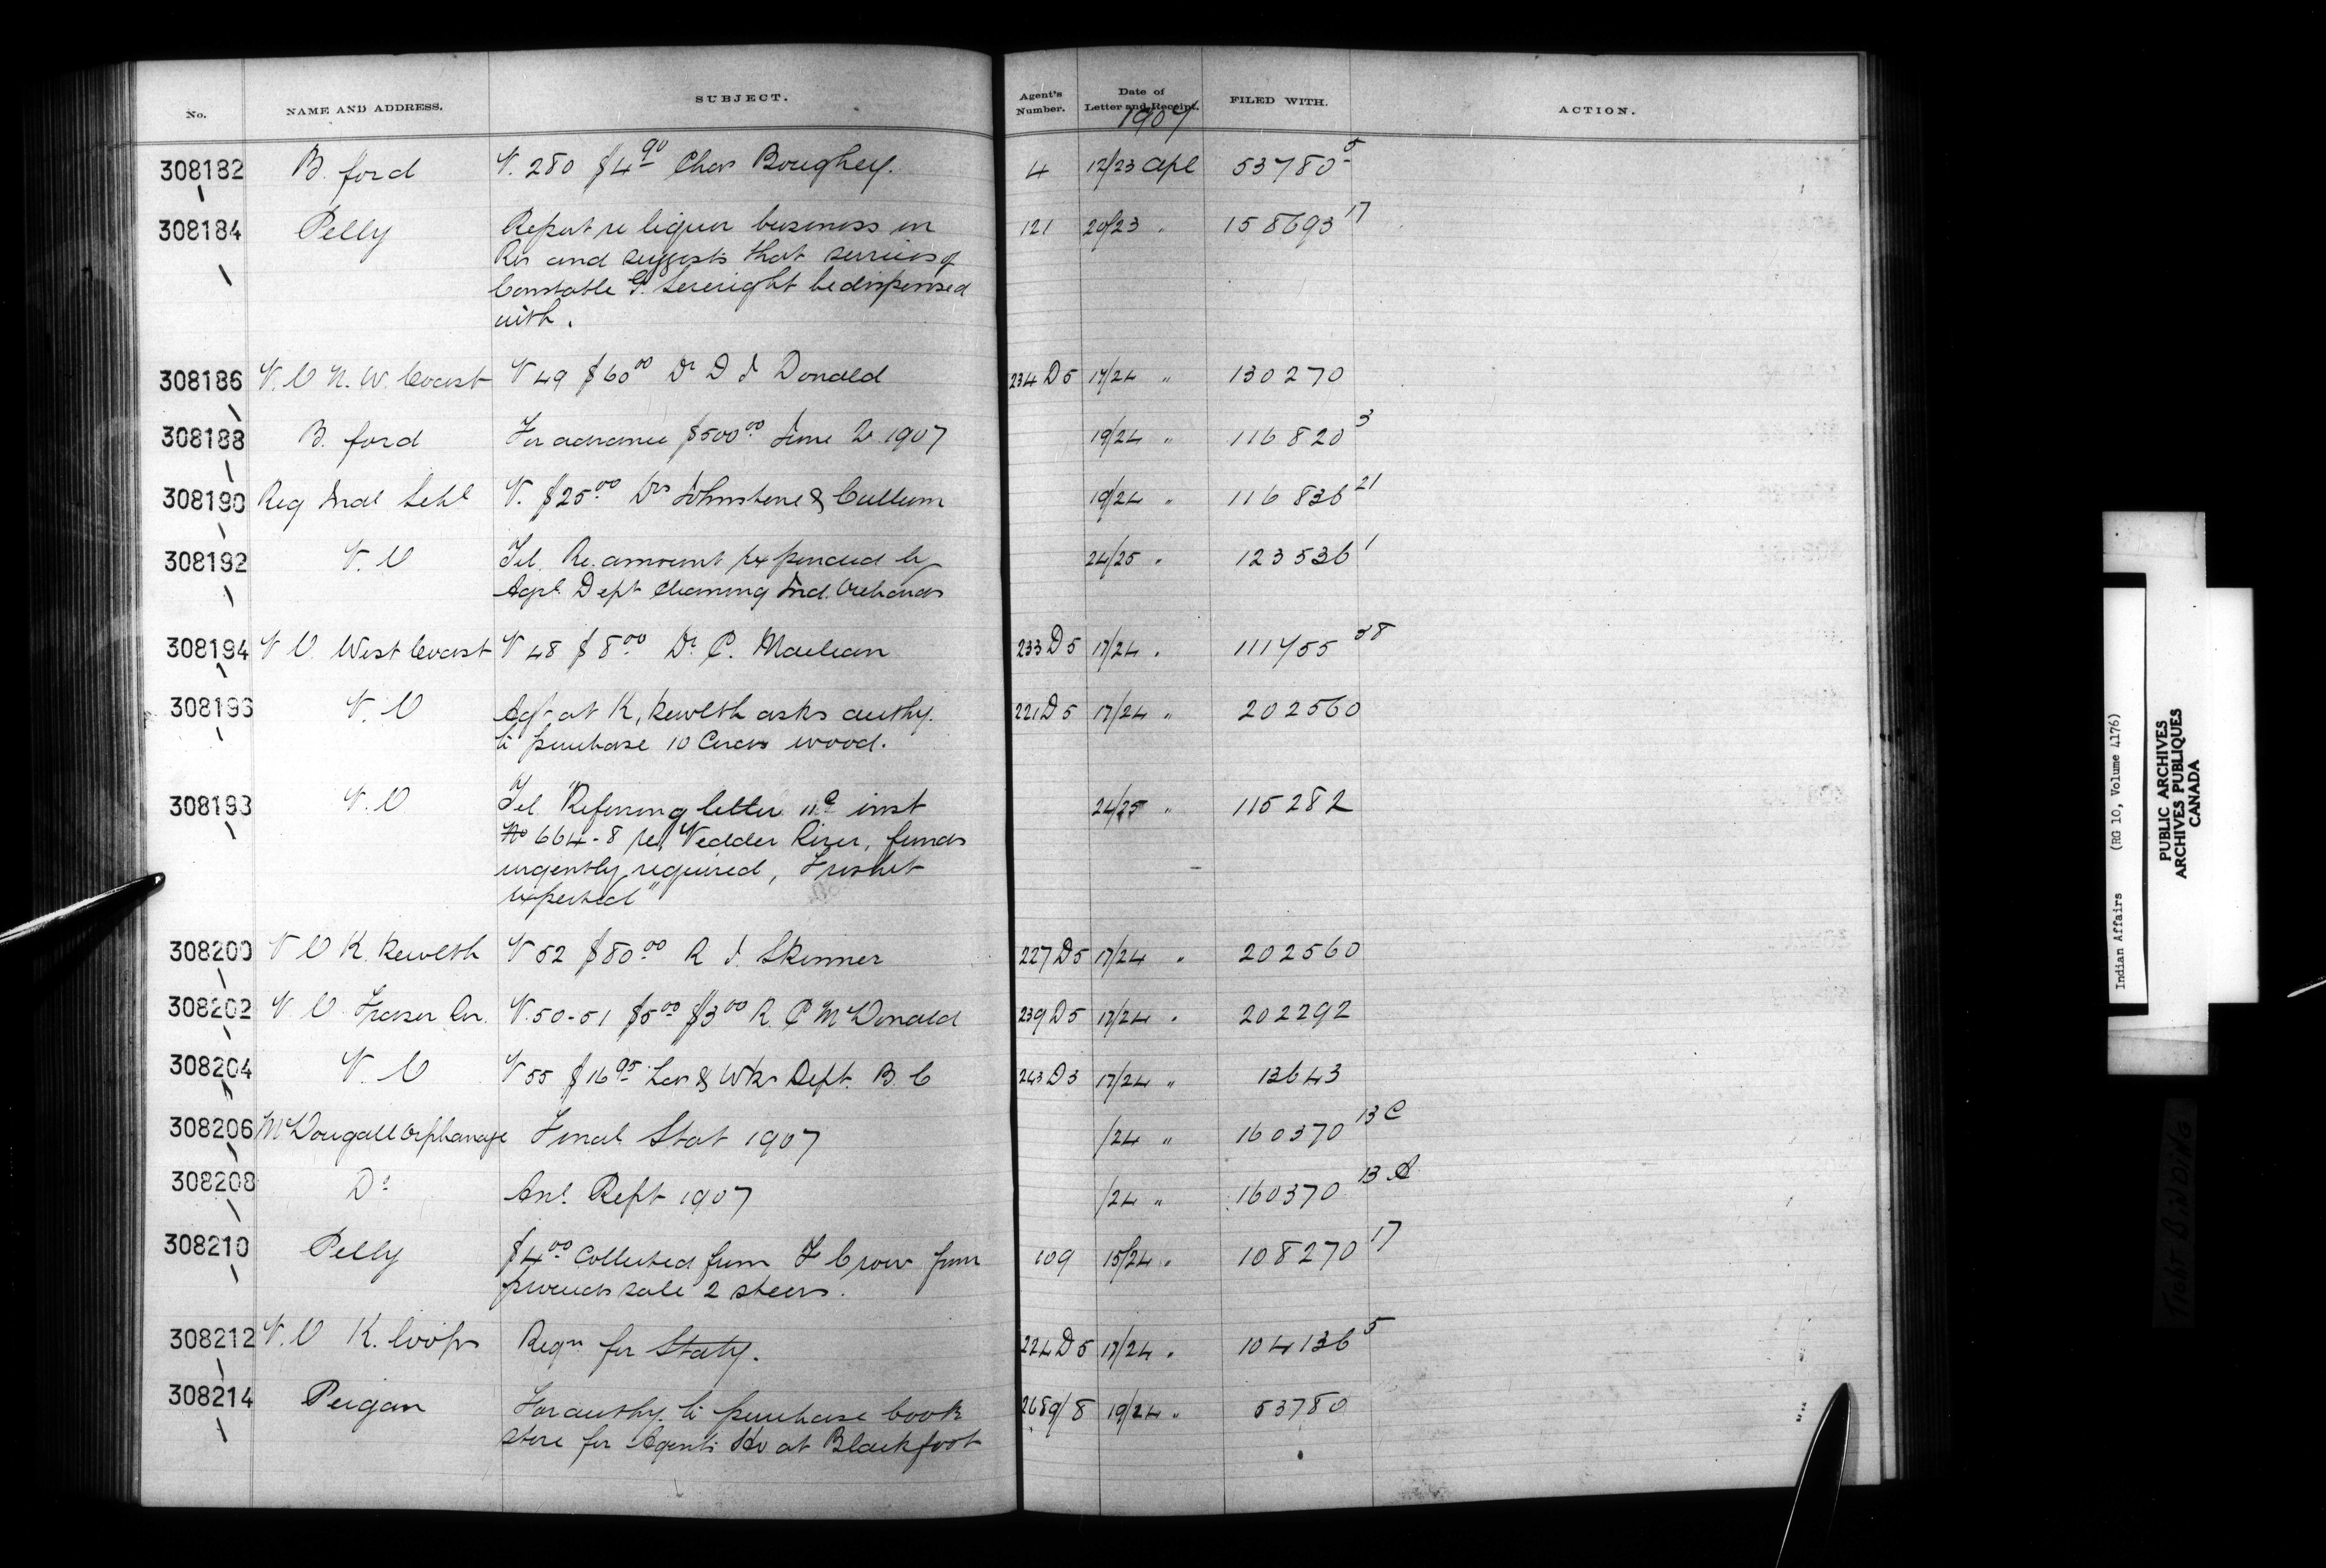 No. NAME AND ADDRESS. SUBJECT. Agent's Number. Date of Letter and Receipt. FILED WITH. ACTION.
1907
308182 B. ford V. 280 $4 90 Chas Boughey. 4 12/23 Apl 53780 5
308184 Pelly Report re liquor business on 121 20/23 " 158693 17
Res and suggests that services of
Constable G. be dispensed
with.
308186 V. O N. W. Coast V 49 $60 00 Dr D J Donald 234 D5 17/24 " 130270
308188 B. ford For advance $500 00 June Qr 1907 19/24 " 116820 3
308190 Reg Indl Schl V. $25 00 Drs Johnstone & Cullum 19/24 " 116836 21
308192 V. O Tel. Re. amount expended by 24/25 " 123536 1
Agrl. Dept cleaning Ind. Orchards
308194 V O West Coast V 48 $8 00 Dr C. Maclean 233 D5 17/24 " 111755 38
308196 V. O Agt at K, kewlth asks authy. 221 D5 17/24 " 202560
to purchase 10 Cords wood.
308198 V. O Tel "Referring letter inst 24/25 " 115282
No 664-8 re Vedder River, funds
urgently required, Freshet
expected"
308200 V O K. kewlth V 52 $80 00 R J. Skinner 227 D5 17/24 " 202560
308202 V O Fraser Riv. V. 50-51 $5 00 $3 00 R. C McDonald 239 D5 17/24 " 202292
308204 V. O V 55 $16 95 Lds & Wks Dept. B. C 243 D3 17/24 " 13643
308206 McDougall Orphanage Final Stat 1907 /24 " 160370 13 C
308208 Do Anl. Rept 1907 /24 " 160370 13
308210 Pelly $4 00 Collected from F Crow from 109 15/24 " 108270 17
proceeds sale 2 steers.
308212 V. O K. loops Reqn for Staty. 224 D5 17/24 " 104136 5
308214 Peigan For authy. to purchase cook 2689/8 19/24 " 53780
stove for Agents Ho at Blackfoot
Indian Affairs (RG 10, Volume 4176)
PUBLIC ARCHIVES
ARCHIVES PUBLIQUES
CANADA
BINDING